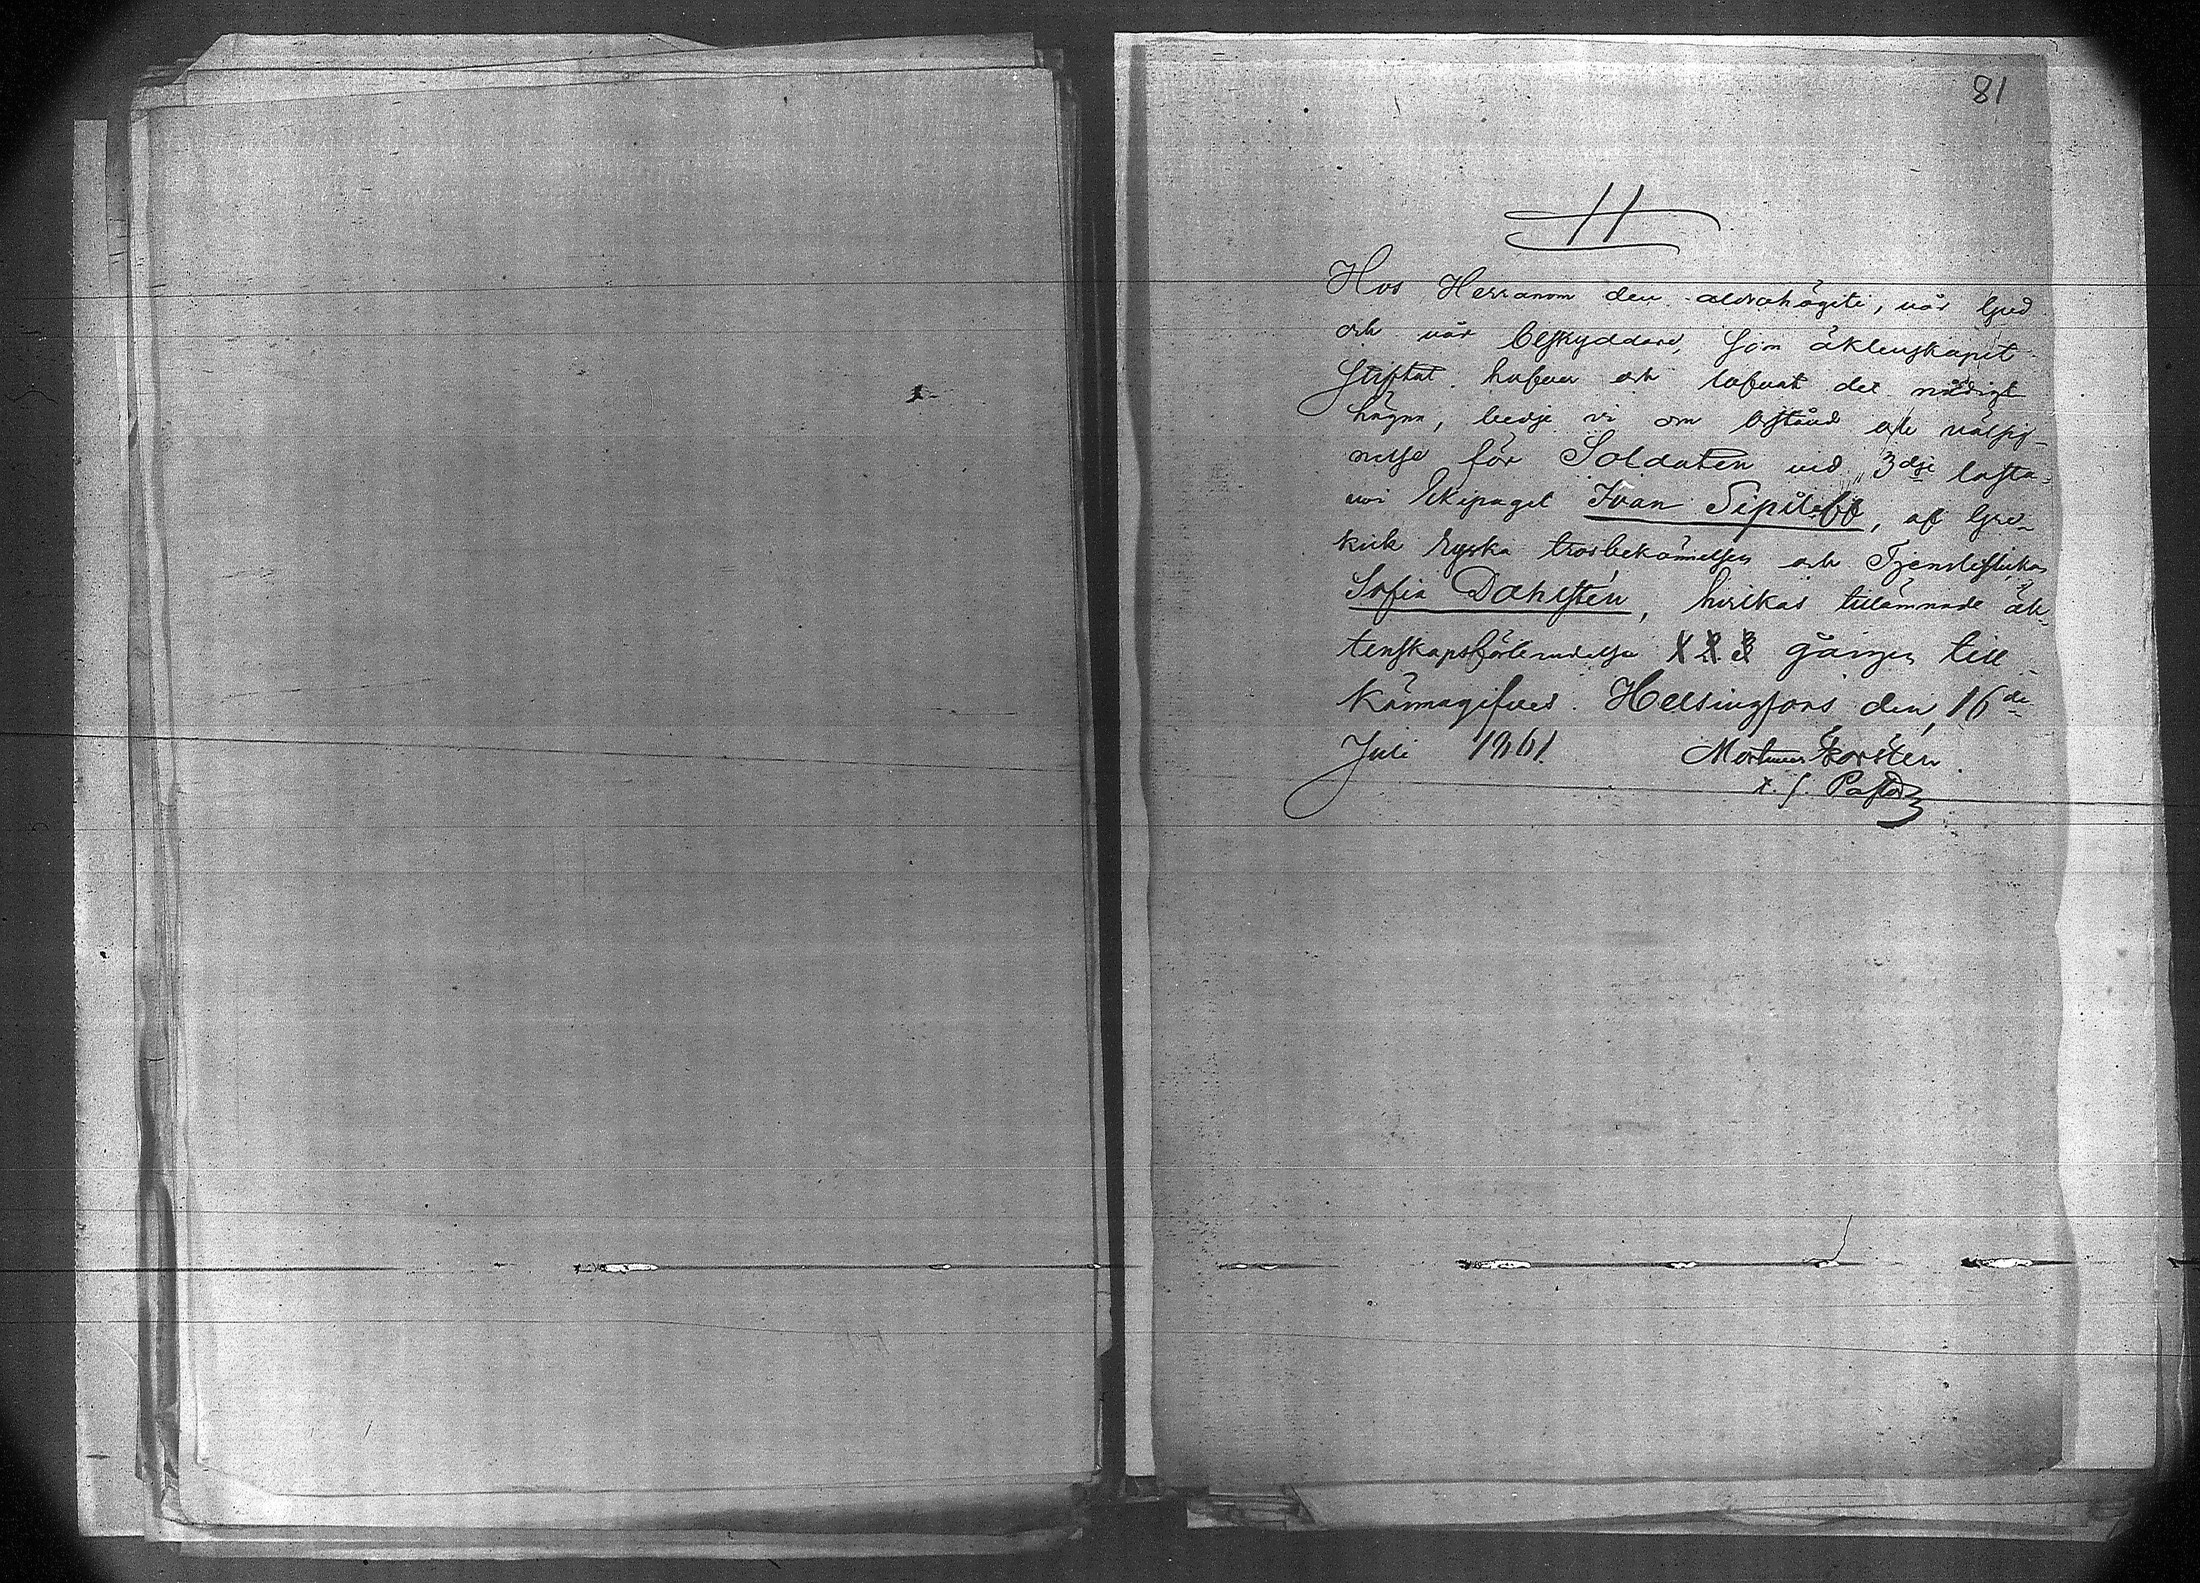 81
11
Hos Herranom den aldrahögste, vår Gud
och vår Beskyddare, som äktenskapet
stiftat hafver och lofvat det nådigt
hägna, bedje vi om bistånd och välsig-
nelse för Soldaten vid 3dje lasta-
voi Ekipaget Ivan Sipileff, af Gre-
kisk Ryska trosbekännelsen och Tjensteflickan
Sofia Dahlstén, hvilkas tillämnade äk-
tenskapsförbindelse 1 2 3 gången till
kännagifves. Helsingfors den 16de
Juli 1861. Mortimer
t. f. Pastor